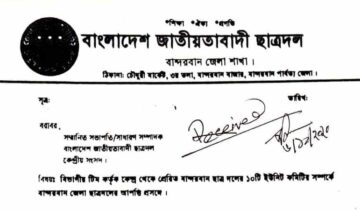 শিক্ষা ঐক্য প্রগতি
বাংলাদেশ জাতীয়তাবাদী ছাত্রদল
বান্দরবান জেলা শাখা।
ঠিকানা: চৌধুরী মার্কেট, ৩য় তলা, বান্দরবান বাজার, বান্দরবান পার্বত্য জেলা।
সূত্র: তারিখ:
বরাবর,
সম্মানিত সভাপতি/সাধারণ সম্পাদক
বাংলাদেশ জাতীয়তাবাদী ছাত্রদল
কেন্দ্রীয় সংসদ।
Received
বিষয়: বিভাগীয় টিম কর্তৃক কেন্দ্র থেকে প্রেরিত বান্দরবান ছাত্র দলের ১০টি ইউনিট কমিটির সম্পর্কে
বান্দরবান জেলা ছাত্রদলের আপত্তি প্রসঙ্গে।